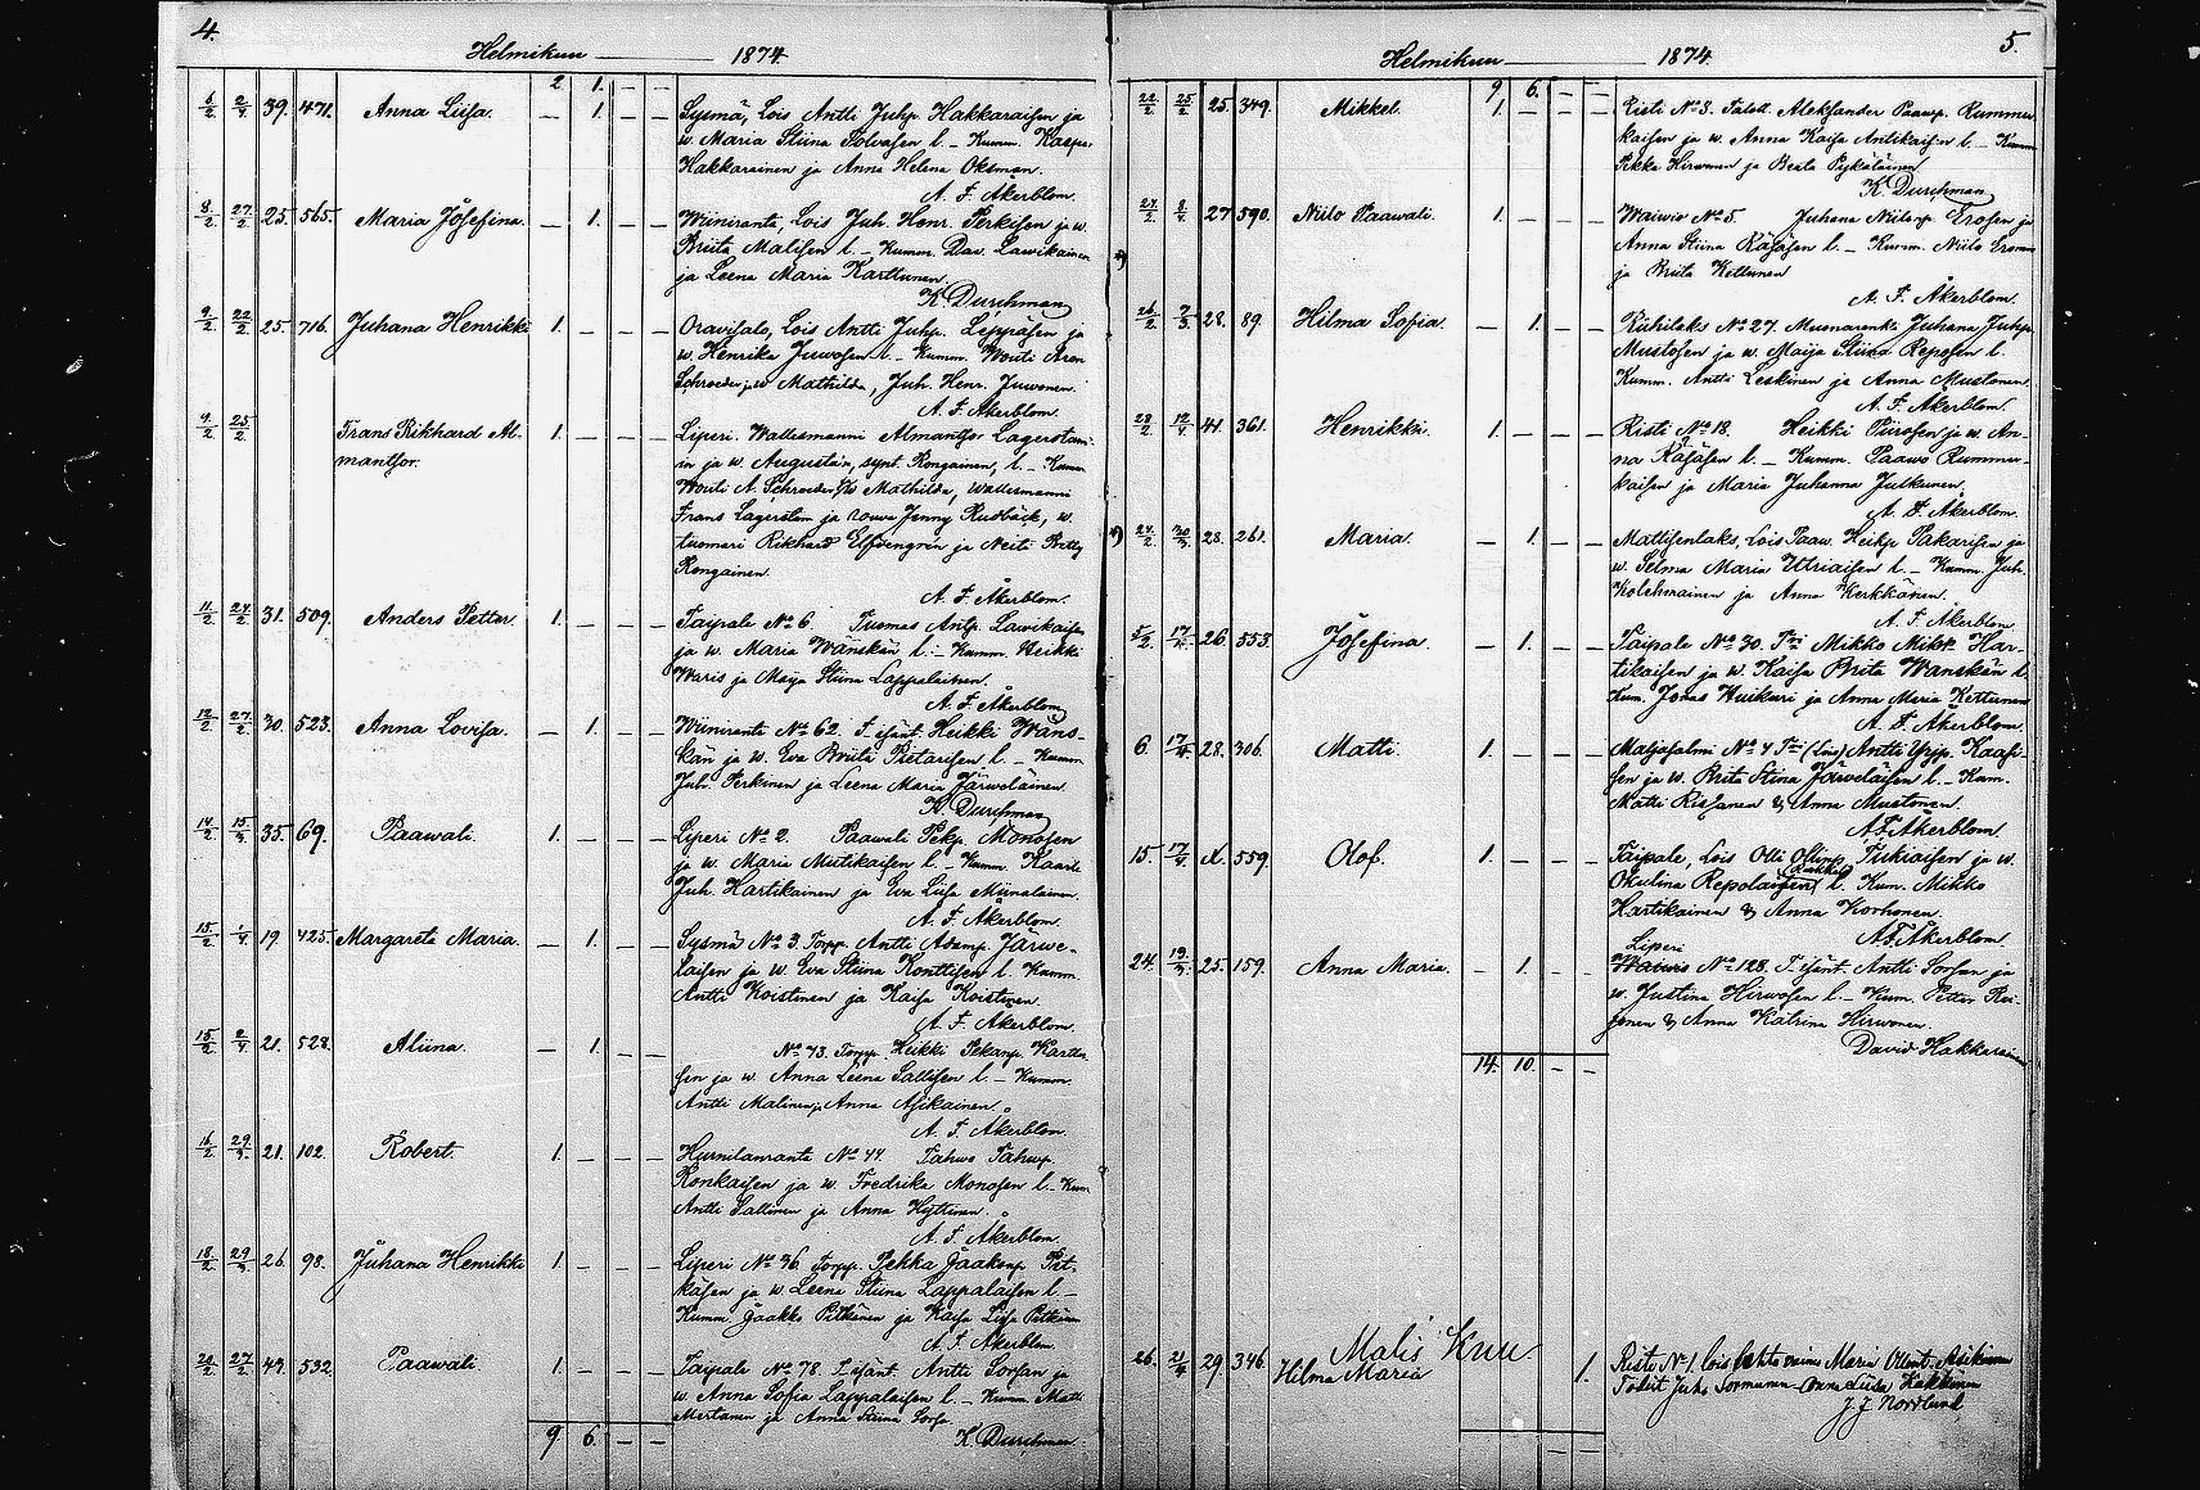 4.
Helmikuu 1874.
2 1. — —
6/2 2/4 39. 471. Anna Liisa. — 1. — — Sysmä, Lois Antti Juhp. Hakkaraisen ja
w. Maria Stiina Polvasen l. — Kumm. Kaspar
Hakkarainen ja Anna Helena Oksman.
A. F. Åkerblom.
8/2 27/2 25. 565. Maria Josefina. — 1. — — Wiiniranta, Lois Juh. Henr. Perkisen ja w.
Briita Malisen l. — Kumm. Dav. Lawikainen
ja Leena Maria Karttunen.
K. Durchman
9/2 22/2 25. 716. Juhana Henrikki 1. — — — Oravisalo, Lois Antti Juhp. Leppäsen ja
w. Henrika Juwosen l. — Kumm. Wouti Aron
Schroeder ja w Mathilda, Juh. Henr. Juwonen.
A. F. Åkerblom.
9/2 25/2 Frans Rikhard Al- 1. — — — Liperi. Wallesmanni Almantsor Lagerstam-
mantsor. in ja w. Augusta'n, synt. Rongainen, l. — Kumm.
Wouti A. Schroeder ja w Mathilda, Wallesmanni
Frans Lagerstam ja rouva Jenny Rudbäck, w.
tuomari Rikhard Elfvengren ja Neiti Betty
Rongainen.
A. F. Åkerblom.
11/2 24/2 31. 509. Anders Petter. 1. — — — Taipale No 6. Tuomas Antp. Lawikaisen
ja w. Maria Wänskän l. — Kumm. Heikki
Waris ja Maija Stiina Lappalainen.
A. F. Åkerblom
12/2 27/2 30. 523. Anna Lovisa. — 1. — — Wiiniranta No 62. T. isänt. Heikki Wäns-
kän ja w. Eva Briita Pietarisen l. — Kumm
Juh. Perkinen ja Leena Maria Järweläinen.
K. Durchman
14/2 15/3 35. 69. Paawali. 1. — — — Liperi No 2. Paawali Pekp. Monosen
ja w. Maria Mutikaisen l. — Kumm. Kaarle
Juh. Hartikainen ja Eva Liisa Miinalainen.
A. F. Åkerblom.
15/2 1/4 19. 425. Margareta Maria. — 1. — — Sysmä No 3. Torpp. Antti Adamp. Järwe-
läisen ja w. Eva Stiina Konttisen l. Kumm.
Antti Koistinen ja Kaisa Koistinen.
A. F. Åkerblom.
15/2 2/4 21. 528. Aliina. — 1. — — No 73. Torpp. Heikki Pekanp. Karttu-
sen ja w. Anna Leena Sallisen l. — Kumm.
Antti Malinen ja Anna Asikainen.
A. F. Åkerblom.
16/2 29/3 21. 102. Robert. 1. — — — Hurnilanranta No 44. Tahwo Tahwop.
Ronkaisen ja w. Fredrika Monosen l. — Kum
Antti Sallinen ja Anna Hyttinen.
A. F. Åkerblom.
18/2 29/3 26. 98. Juhana Henrikki 1. — — — Liperi No 36 Torpp. Pekka Jaakonp Pit-
käsen ja w. Leena Stiina Lappalaisen l. —
Kumm. Jaakko Pitkänen ja Kaisa Liisa Pitkänen
A. F. Åkerblom.
20/2 27/2 43. 532. Paawali. 1. — — — Taipale No 78. T. isänt. Antti Sorsan ja
w. Anna Sofia Lappalaisen l. — Kumm. Matti
Mertanen ja Anna Stiina Sorsa.
9. 6. — — K. Durchman.
5.
Helmikuu 1874.
9. 6. — —
22/2 25/2 25. 349. Mikkel. 1. — — — Risti No 3. Taloll. Aleksander Paawp. Rummu-
kaisen ja w. Anna Kaisa Antikaisen l. — Kumm
Pekka Hirwonen ja Beata Pykäläinen
K. Durchman
27. 590. Niilo Paawali. 1. — — — Waiwio No 5. Juhana Niilonp. Erosen ja
Anna Stiina Räsäsen l. — Kumm. Niilo Eronen
ja Briita Kettunen
A. F. Åkerblom.
26/2 7/3 28. 89. Hilma Sofia. — 1. — — Riihilaks No 27. Muonarenki Juhana Juhp.
Mustosen ja w. Maija Stiina Reposen l.
Kumm. Antti Leskinen ja Anna Mustonen.
A. F. Åkerblom.
28/2 12/4 41. 361. Henrikki. 1. — — — Risti No 18. Heikki Piirosen ja w. An-
na Räsäsen l. — Kumm. Paawo Rummu-
kaisen ja Maria Juhanna Jutkunen.
A. F. Åkerblom.
24/2 30/3 28. 261. Maria. — 1. — — Mattisenlaks, Lois Paaw. Heikp Pakarisen ja
w. Selma Maria Utriaisen l. — Kumm. Juh.
Kolehmainen ja Anna Kerkkänen.
A. F. Åkerblom
5/2 17/4 26. 553 Josefina. — 1. — — Taipale No 30. Tri Mikko Mikk. Har-
tikaisen ja w. Kaisa Brita Wanskän l.
Kum. Jonas Huikuri ja Anna Maria Kettunen
A. F. Åkerblom.
6. 17/4 28. 306. Matti. 1. — — — Maljasalmi No 4 Tri (Lois) Antti Yrjp. Kaasi-
sen ja w. Brita Stina Järveläisen l. — Kum.
Matti Rissanen & Anna Mustonen.
A F Åkerblom.
15. 17/4 559. Olof. 1. — — — Taipale, Lois Olli Ollinp Tukiaisen ja w.
Okulina Repolaisen l. Kum. Mikko
Hartikainen & Anna Korhonen.
A. F. Åkerblom.
Liperi
24. 19/3 25. 159. Anna Maria. — 1. — — Waiwio No 128. T. isänt. Antti Sorsan ja
w. Justina Hirwosen l. — Kum. Petter Rei-
jonen & Anna Katrina Hirwonen.
David Hakkarainen
14. 10. — —
Malis Kuu.
26. 21/4 29. 346. Hilma Maria 1. Risti No 1. lois Maria Ollint. Asikainen
Todist Juho Sormunen — Anna Liisa Hakkinen
J. J. Nordlund
— —